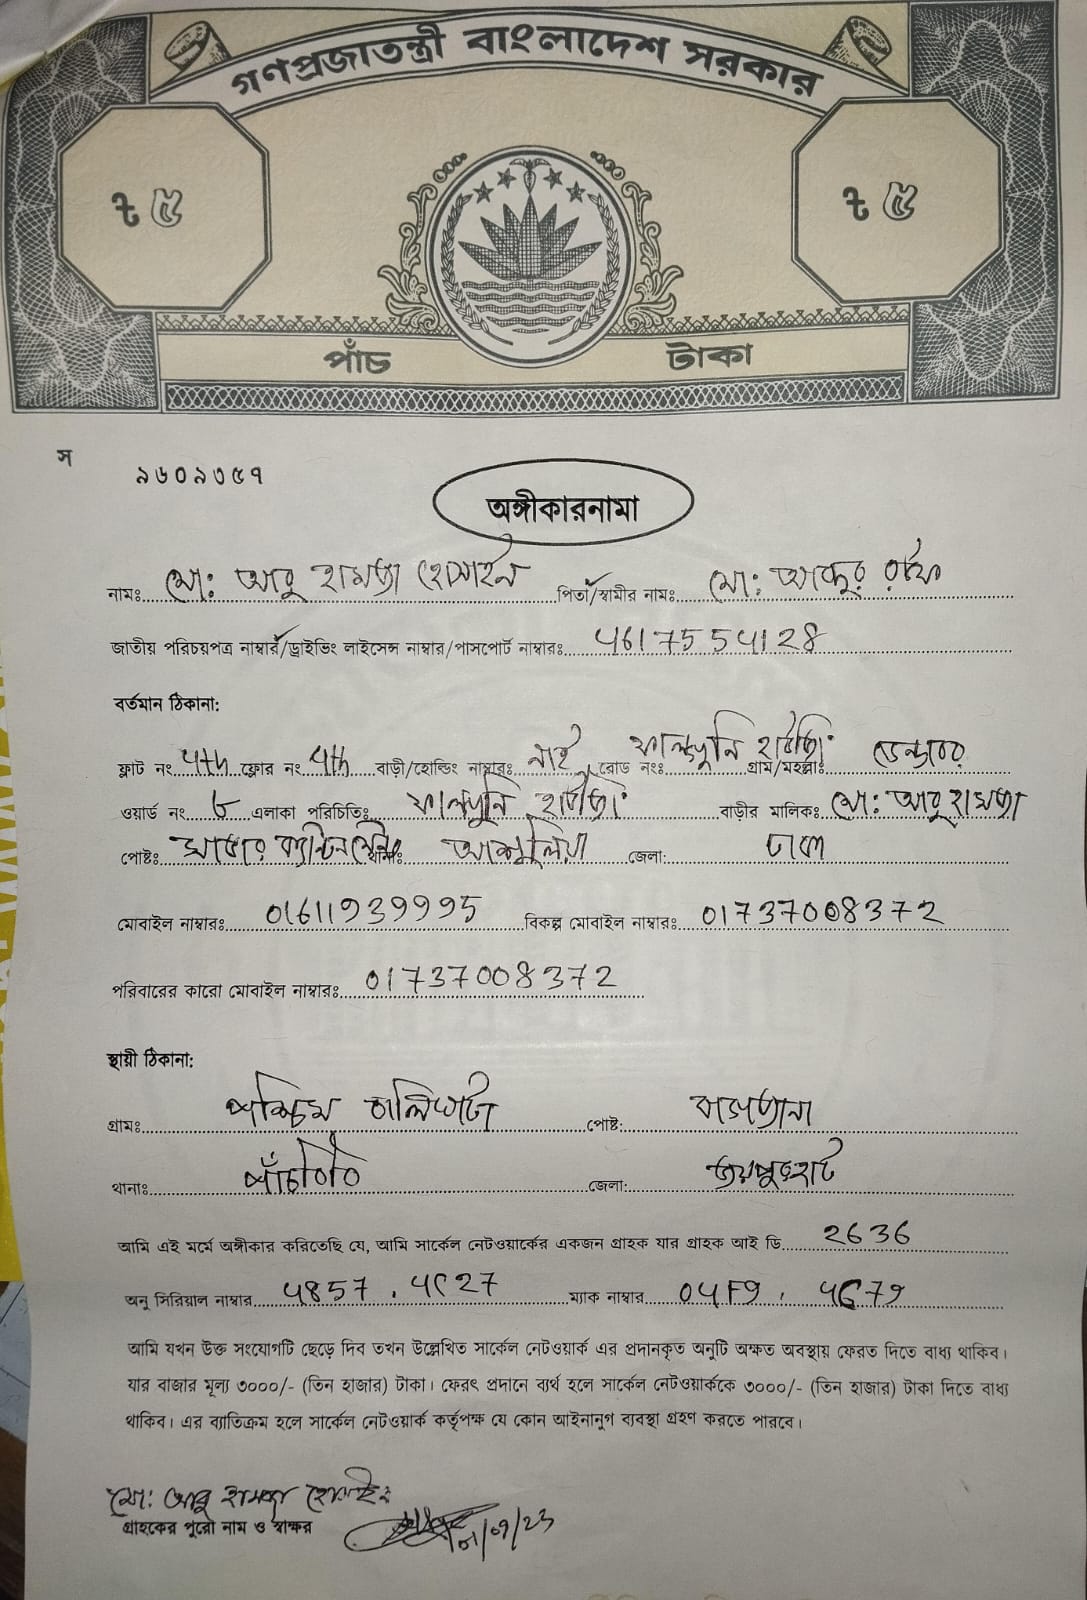 গণপ্রজাতন্ত্রী বাংলাদেশ সরকার
৳ ৫ ৳ ৫
পাঁচ টাকা
স ৯৬০৯৩৫৭
অঙ্গীকারনামা
নামঃ মোঃ আবু হামজা হোসাইন পিতা/স্বামীর নামঃ মোঃ আব্দুর রফি
জাতীয় পরিচয়পত্র নাম্বার/ড্রাইভিং লাইসেন্স নাম্বার/পাসপোর্ট নাম্বারঃ 4617554128
বর্তমান ঠিকানা:
ফ্লাট নং 4th ফ্লোর নং 4th বাড়ী/হোল্ডিং নাম্বারঃ নাই রোড নংঃ ফালগুনি হাউজিং গ্রাম/মহল্লাঃ ডেন্ডাবর
ওয়ার্ড নং ৬ এলাকা পরিচিতিঃ ফালগুনি হাউজিং বাড়ীর মালিকঃ মোঃ আবু হামজা
পোষ্টঃ সাভার ক্যান্টনমেন্ট থানাঃ আশুলিয়া জেলা: ঢাকা
মোবাইল নাম্বারঃ 01611939995 বিকল্প মোবাইল নাম্বারঃ 01737008372
পরিবারের কারো মোবাইল নাম্বারঃ 01737008372
স্থায়ী ঠিকানা:
গ্রামঃ পশ্চিম বালিঘাটা পোষ্ট:
থানাঃ পাঁচবিবি জেলা: জয়পুরহাট
আমি এই মর্মে অঙ্গীকার করিতেছি যে, আমি সার্কেল নেটওয়ার্কের একজন গ্রাহক যার গ্রাহক আই ডি 2636
অনু সিরিয়াল নাম্বার 4857 . 4C27 ম্যাক নাম্বার 04F9 , 4C79
আমি যখন উক্ত সংযোগটি ছেড়ে দিব তখন উল্লেখিত সার্কেল নেটওয়ার্ক এর প্রদানকৃত অনুটি অক্ষত অবস্থায় ফেরত দিতে বাধ্য থাকিব।
যার বাজার মূল্য ৩০০০/- (তিন হাজার) টাকা। ফেরৎ প্রদানে ব্যর্থ হলে সার্কেল নেটওয়ার্ককে ৩০০০/- (তিন হাজার) টাকা দিতে বাধ্য
থাকিব। এর ব্যাতিক্রম হলে সার্কেল নেটওয়ার্ক কর্তৃপক্ষ যে কোন আইনানুগ ব্যবস্থা গ্রহণ করতে পারবে।
মোঃ আবু হামজা হোসাইন
গ্রাহকের পুরো নাম ও স্বাক্ষর